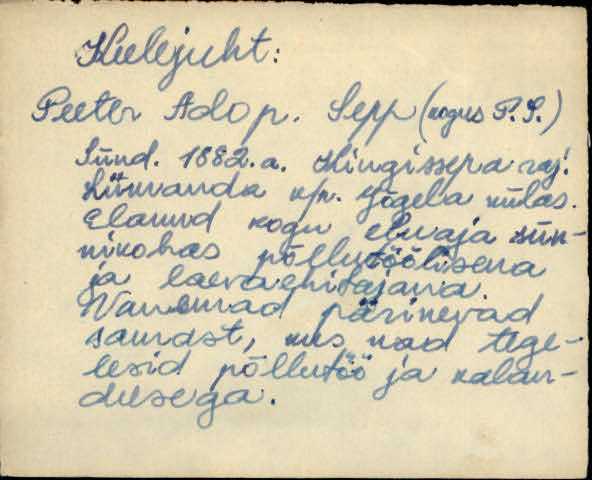 Keelejuht:
Peeter Ado p. Sepp (kogus P.S.)
Sünd. 1882.a. Kingissepa raj.
Lümanda k/n. Jõgela külas.
Elanud kogu eluaja sün-
nikohas põllutöölisena
ja laevaehitajana.
Vanemad pärinevad
samast, kus nad tege-
lesid põllutöö ja kalan-
dusega.